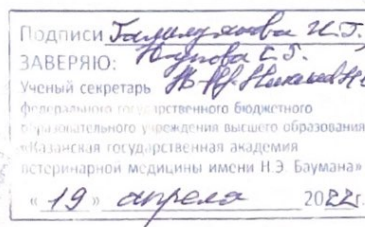 Подписи Галимзянова И.Г.,
Наумова С.Г.
ЗАВЕРЯЮ:
Ученый секретарь
федерального государственного бюджетного
образовательного учреждения высшего образования
«Казанская государственная академия
ветеринарной медицины имени Н.Э. Баумана»
« 19 » апреля 2022г.